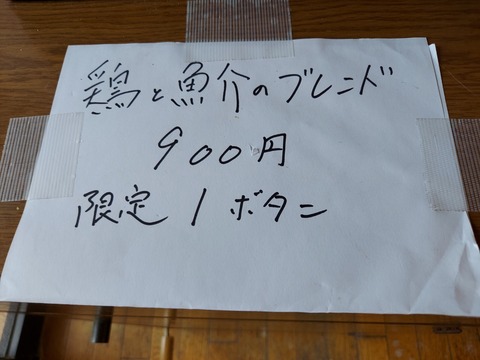 鶏と魚介のブレンド
900円
限定1ボタン